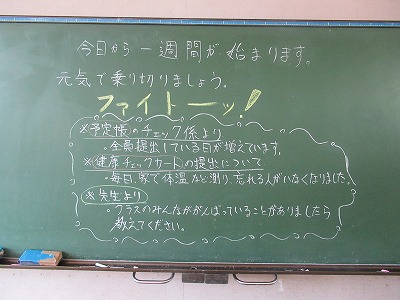 今日から一週間が始まります。
元気で乗り切りましょう。
ファイトーッ!
※予定帳のチェック係より
。全員提出している日が増えています。
※健康チェックカードの提出について
。毎日、家で体温など測り、忘れる人がいなくなりました。
※先生より
。クラスのみんながんばっていることがありましたら
教えてください。